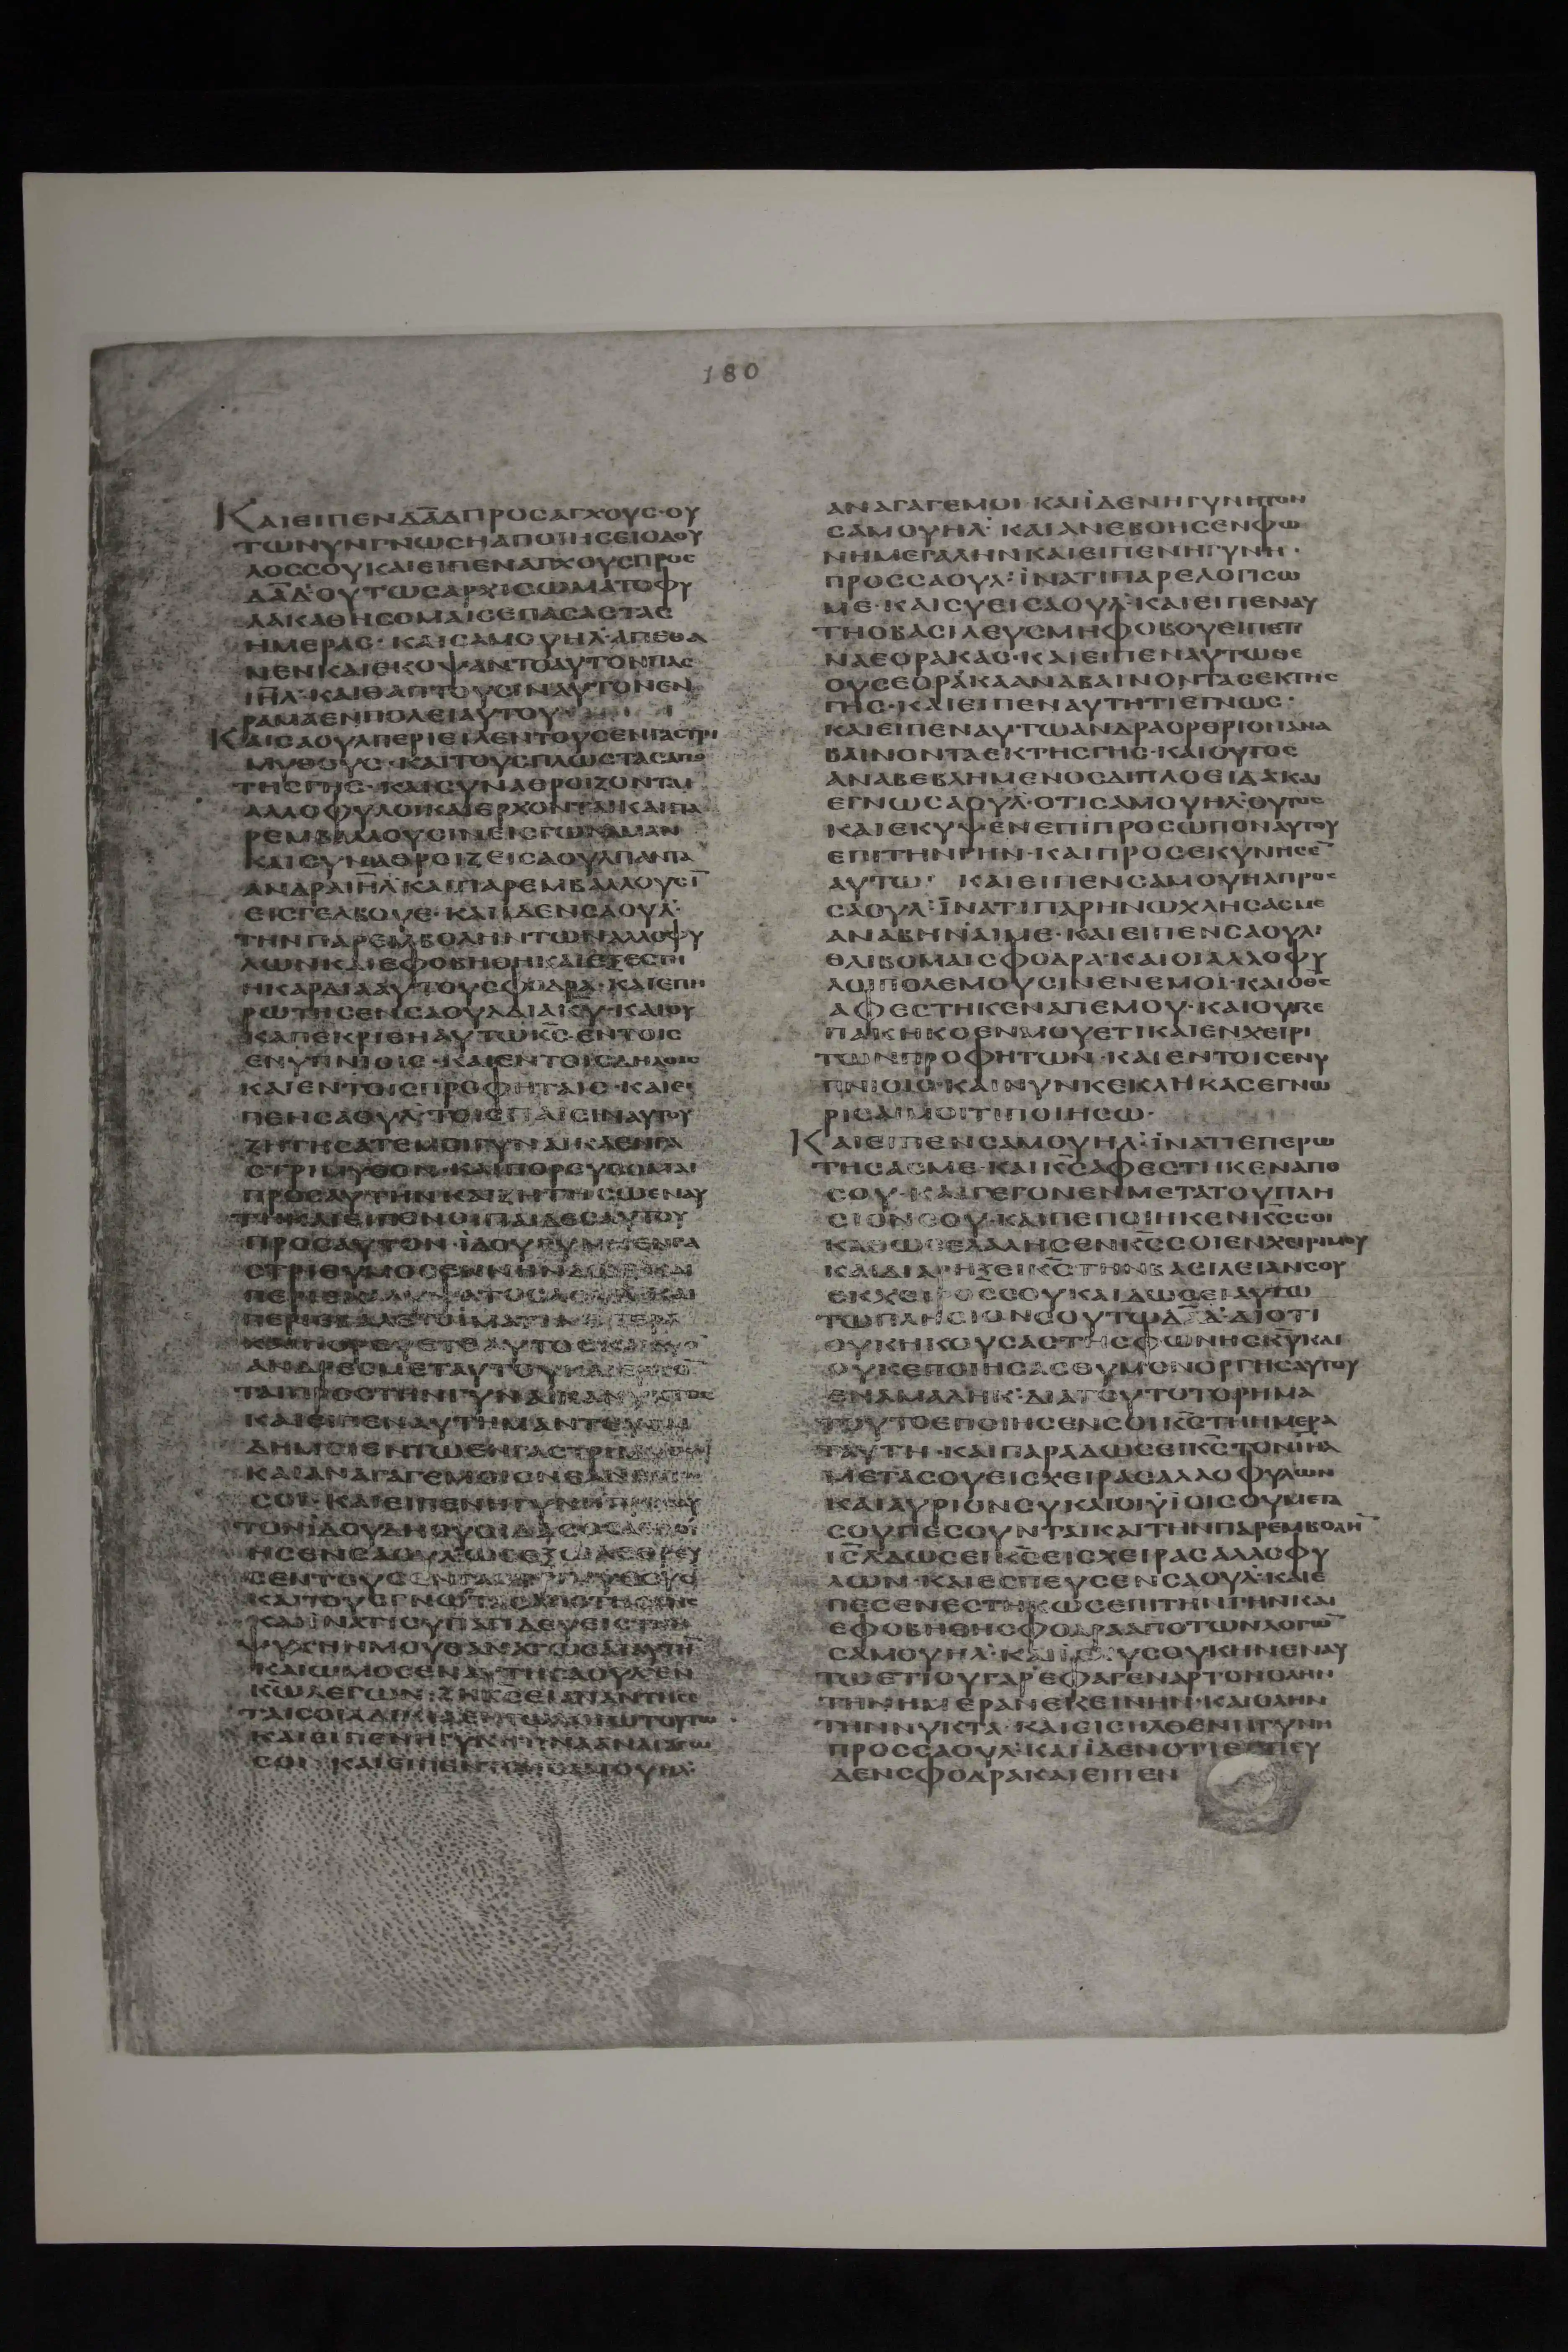 180
ΚΑΙΕΙΠΕΝΔΑΔΠΡΟΣΑΓΧΟΥΣ·ΟΥ
ΤΩΝΥΝΓΝΩΣΗΑΠΟΙΗΣΕΙΟΔΟΥ
ΛΟΣΣΟΥΚΑΙΕΙΠΕΝΑΓΧΟΥΣΠΡΟΣ
ΔΑΔ·ΟΥΤΩΣΑΡΧΙΣΩΜΑΤΟΦΥ
ΛΑΚΑΘΗΣΟΜΑΙΣΕΠΑΣΑΣΤΑΣ
ΗΜΕΡΑΣ·ΚΑΙΣΑΜΟΥΗΛ·ΑΠΕΘΑ
ΝΕΝΚΑΙΕΚΟΨΑΝΤΟΑΥΤΟΝΠΑΣ
ΙΗΛ·ΚΑΙΘΑΠΤΟΥΣΙΝΑΥΤΟΝΕΝ
ΡΑΜΑΕΝΠΟΛΕΙΑΥΤΟΥ
ΚΑΙΣΑΟΥΛΠΕΡΙΕΙΛΕΝΤΟΥΣΕΝΓΑΣΤΡΙ
ΜΥΘΟΥΣ·ΚΑΙΤΟΥΣΓΝΩΣΤΑΣΑΠΟ
ΤΗΣΓΗΣ·ΚΑΙΣΥΝΑΘΡΟΙΖΟΝΤΑΙ
ΑΛΛΟΦΥΛΟΙΚΑΙΕΡΧΟΝΤΑΙΚΑΙΠΑ
ΡΕΜΒΑΛΛΟΥΣΙΝΕΙΣΓΩΝΑΜΑΝ
ΚΑΙΣΥΝΑΘΡΟΙΖΕΙΣΑΟΥΛΠΑΝΤΑ
ΑΝΔΡΑΙΗΛ·ΚΑΙΠΑΡΕΜΒΑΛΛΟΥΣΙ̅
ΕΙΣΓΕΛΒΟΥΕ·ΚΑΙΙΔΕΝΣΑΟΥΛ·
ΤΗΝΠΑΡΕΜΒΟΛΗΝΤΩΝΑΛΛΟΦΥ
ΛΩΝΚΑΙΕΦΟΒΗΘΗΚΑΙΕΞΕΣΤΗ
ΗΚΑΡΔΙΑΑΥΤΟΥΣΦΟΔΡΑ·ΚΑΙΕΠΗ
ΡΩΤΗΣΕΝΣΑΟΥΛΔΙΑΚΥ·ΚΑΙΟΥ
ΚΑΠΕΚΡΙΘΗΑΥΤΩΚΣ·ΕΝΤΟΙΣ
ΕΝΥΠΝΙΟΙΣ·ΚΑΙΕΝΤΟΙΣΔΗΛΟΙΣ
ΚΑΙΕΝΤΟΙΣΠΡΟΦΗΤΑΙΣ·ΚΑΙΕΙ
ΠΕΝΣΑΟΥΛ·ΤΟΙΣΠΑΙΣΙΝΑΥΤΟΥ
ΖΗΤΗΣΑΤΕΜΟΙΓΥΝΑΙΚΑΕΝΓΑ
ΣΤΡΙΜΥΘΟΝ·ΚΑΙΠΟΡΕΥΣΟΜΑΙ
ΠΡΟΣΑΥΤΗΝΚΑΙΖΗΤΗΣΩΕΝΑΥ
ΤΗΚΑΙΕΙΠΟΝΟΙΠΑΙΔΕΣΑΥΤΟΥ
ΠΡΟΣΑΥΤΟΝ·ΙΔΟΥΓΥΝΗΕΝΓΑ
ΑΝΔΡΕΣΜΕΤΑΥΤΟΥΚΑΙΕΡΧΟ̅
ΤΑΙΠΡΟΣΤΗΝΓΥΝΑΙΚΑΝΥΚΤΟΣ
ΚΑΙΕΙΠΕΝΑΥΤΗΜΑΝΤΕΥΣΑΙ
ΔΗΜΟΙΕΝΤΩΕΝΓΑΣΤΡΙΜΥΘΩ
ΚΑΙΑΝΑΓΑΓΕΜΟΙΟΝΕΑΝΕΙΠΩ
ΣΟΙ·ΚΑΙΕΙΠΕΝΗΓΥΝΗΠΡΟΣΑΥ
ΨΥΧΗΝΜΟΥΘΑΝΑΤΩΣΑΙΑΥΤΗ̅
ΚΑΙΩΜΟΣΕΝΑΥΤΗΣΑΟΥΛ·ΕΝ
ΚΩΛΕΓΩΝ·ΖΗΚΣΕΙΑΠΑΝΤΗΣΕ
ΤΑΙΣΟΙΑΔΙΚΙΑΕΝΤΩΛΟΓΩΤΟΥΤΩ
ΚΑΙΕΙΠΕΝΗΓΥΝΗΤΙΝΑΑΝΑΓΑΓΩ
ΣΟΙ·ΚΑΙΕΙΠΕΝΤΟΝΣΑΜΟΥΗΛ·
ΑΝΑΓΑΓΕΜΟΙ·ΚΑΙΙΔΕΝΗΓΥΝΗΤΟΝ
ΣΑΜΟΥΗΛ·ΚΑΙΑΝΕΒΟΗΣΕΝΦΩ
ΝΗΜΕΓΑΛΗΝΚΑΙΕΙΠΕΝΗΓΥΝΗ·
ΠΡΟΣΣΑΟΥΛ·ΙΝΑΤΙΠΑΡΕΛΟΓΙΣΩ
ΜΕ·ΚΑΙΣΥΕΙΣΑΟΥΛ·ΚΑΙΕΙΠΕΝΑΥ
ΤΗΟΒΑΣΙΛΕΥΣΜΗΦΟΒΟΥΕΙΠΕΤΙ
ΝΑΕΟΡΑΚΑΣ·ΚΑΙΕΙΠΕΝΑΥΤΩΘΕ
ΟΥΣΕΟΡΑΚΑΑΝΑΒΑΙΝΟΝΤΑΣΕΚΤΗΣ
ΓΗΣ·ΚΑΙΕΙΠΕΝΑΥΤΗΤΙΕΓΝΩΣ·
ΚΑΙΕΙΠΕΝΑΥΤΩΑΝΔΡΑΟΡΘΡΙΟΝΑΝΑ
ΒΑΙΝΟΝΤΑΕΚΤΗΣΓΗΣ·ΚΑΙΟΥΤΟΣ
ΑΝΑΒΕΒΛΗΜΕΝΟΣΔΙΠΛΟΕΙΔΑΚΑΙ
ΕΓΝΩΣΑΟΥΛ·ΟΤΙΣΑΜΟΥΗΛ·ΟΥΤΟΣ
ΚΑΙΕΚΥΨΕΝΕΠΙΠΡΟΣΩΠΟΝΑΥΤΟΥ
ΕΠΙΤΗΝΓΗΝ·ΚΑΙΠΡΟΣΕΚΥΝΗΣΕ̅
ΑΥΤΩ·ΚΑΙΕΙΠΕΝΣΑΜΟΥΗΛΠΡΟΣ
ΣΑΟΥΛ·ΙΝΑΤΙΠΑΡΗΝΩΧΛΗΣΑΣΜΕ
ΑΝΑΒΗΝΑΙΜΕ·ΚΑΙΕΙΠΕΝΣΑΟΥΛ·
ΘΛΙΒΟΜΑΙΣΦΟΔΡΑ·ΚΑΙΟΙΑΛΛΟΦΥ
ΛΟΙΠΟΛΕΜΟΥΣΙΝΕΝΕΜΟΙ·ΚΑΙΟΘΣ
ΑΦΕΣΤΗΚΕΝΑΠΕΜΟΥ·ΚΑΙΟΥΚΕ
ΠΑΚΗΚΟΕΝΜΟΥΕΤΙΚΑΙΕΝΧΕΙΡΙ
ΤΩΝΠΡΟΦΗΤΩΝ·ΚΑΙΕΝΤΟΙΣΕΝΥ
ΠΝΙΟΙΣ·ΚΑΙΝΥΝΚΕΚΛΗΚΑΣΕΓΝΩ
ΡΙΣΑΙΜΟΙΤΙΠΟΙΗΣΩ·
ΚΑΙΕΙΠΕΝΣΑΜΟΥΗΛ·ΙΝΑΤΙΕΠΕΡΩ
ΤΗΣΑΣΜΕ·ΚΑΙΚΣΑΦΕΣΤΗΚΕΝΑΠΟ
ΣΟΥ·ΚΑΙΓΕΓΟΝΕΝΜΕΤΑΤΟΥΠΛΗ
ΣΙΟΝΣΟΥ·ΚΑΙΠΕΠΟΙΗΚΕΝΚΣΣΟΙ
ΚΑΘΩΣΕΛΑΛΗΣΕΝΚΣΣΟΙΕΝΧΕΙΡΙΜΟΥ
ΚΑΙΔΙΑΡΗΞΕΙΚΣΤΗΝΒΑΣΙΛΕΙΑΝΣΟΥ
ΕΚΧΕΙΡΟΣΣΟΥΚΑΙΔΩΣΕΙΑΥΤΩ
ΤΩΠΛΗΣΙΟΝΣΟΥΤΩΔΑΔ·ΔΙΟΤΙ
ΟΥΚΗΚΟΥΣΑΣΤΗΣΦΩΝΗΣΚΥΚΑΙ
ΟΥΚΕΠΟΙΗΣΑΣΘΥΜΟΝΟΡΓΗΣΑΥΤΟΥ
ΕΝΑΜΑΛΗΚ·ΔΙΑΤΟΥΤΟΤΟΡΗΜΑ
ΤΟΥΤΟΕΠΟΙΗΣΕΝΣΟΙΚΣΤΗΗΜΕΡΑ
ΤΑΥΤΗ·ΚΑΙΠΑΡΑΔΩΣΕΙΚΣΤΟΝΙΗΛ
ΜΕΤΑΣΟΥΕΙΣΧΕΙΡΑΣΑΛΛΟΦΥΛΩΝ
ΚΑΙΑΥΡΙΟΝΣΥΚΑΙΟΙΥΙΟΙΣΟΥΜΕΤΑ
ΣΟΥΠΕΣΟΥΝΤΑΙΚΑΙΤΗΝΠΑΡΕΜΒΟΛΗ̅
ΙΣΛΔΩΣΕΙΚΣΕΙΣΧΕΙΡΑΣΑΛΛΟΦΥ
ΛΩΝ·ΚΑΙΕΣΠΕΥΣΕΝΣΑΟΥΛ·ΚΑΙΕ
ΠΕΣΕΝΕΣΤΗΚΩΣΕΠΙΤΗΝΓΗΝΚΑΙ
ΕΦΟΒΗΘΗΣΦΟΔΡΑΑΠΟΤΩΝΛΟΓΩ̅
ΣΑΜΟΥΗΛ·ΚΑΙΙΣΧΥΣΟΥΚΗΝΕΝΑΥ
ΤΩΕΤΙΟΥΓΑΡΕΦΑΓΕΝΑΡΤΟΝΟΛΗΝ
ΤΗΝΗΜΕΡΑΝΕΚΕΙΝΗΝ·ΚΑΙΟΛΗΝ
ΤΗΝΝΥΚΤΑ·ΚΑΙΕΙΣΗΛΘΕΝΗΓΥΝΗ
ΠΡΟΣΣΑΟΥΛ·ΚΑΙΙΔΕΝΟΤΙΕΣΠΕΥ
ΔΕΝΣΦΟΔΡΑΚΑΙΕΙΠΕΝ